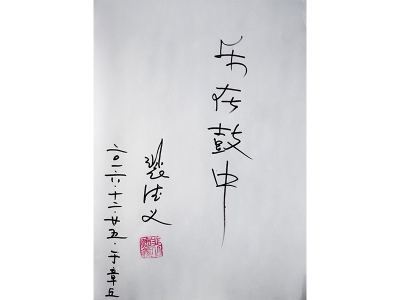 乐在鼓中
裴德义
二〇一六·十二·廿五·于章丘